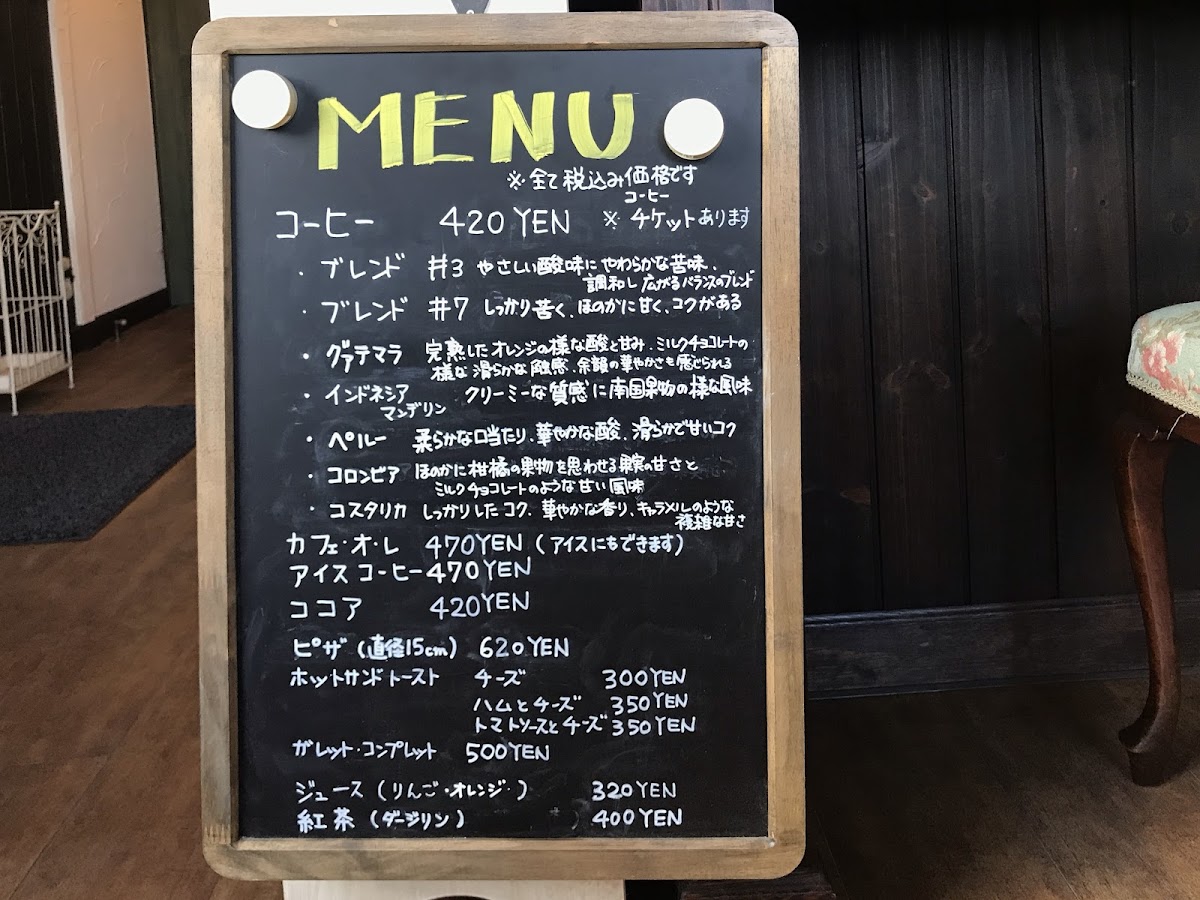 MENU
※全て税込み価格です
コーヒー 420 YEN ※コーヒーチケットあります
・ブレンド #3 やさしい酸味にやわらかな苦味、
調和し広がるバランスのブレンド
・ブレンド #7 しっかり苦く、ほのかに甘く、コクがある
・グァテマラ 完熟したオレンジの様な酸と甘み、ミルクチョコレートの
様な滑らかな触感、余韻の華やかさも感じられる
・インドネシア クリーミーな質感に南国果物の様な風味
マンデリン
・ペルー 柔らかな口当たり、華やかな酸、滑らかで甘いコク
・コロンビア ほのかに柑橘の果物を思わせる果実の甘さと
ミルクチョコレートのような甘い風味
・コスタリカ しっかりしたコク、華やかな香り、キャラメルのような
複雑な甘さ
カフェ・オ・レ 470YEN (アイスにもできます)
アイスコーヒー 470YEN
ココア 420YEN
ピザ (直径15cm) 620YEN
ホットサンドトースト チーズ 300YEN
ハムとチーズ 350YEN
トマトソースとチーズ 350YEN
ガレット・コンプレット 500YEN
ジュース (りんご・オレンジ・) 320YEN
紅茶 (ダージリン) 400YEN